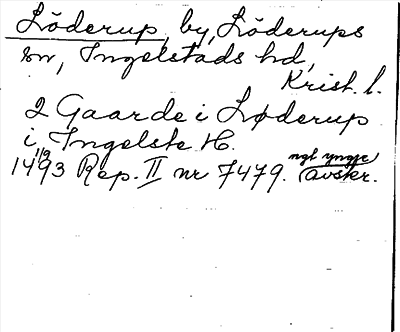 Löderup, by, Löderups
sn, Ingelstads hd,
Krist. l.
2 Gaarde i Løderup
i Ingelste H.
1493 11/9 Rep. II nr 7479. ngt yngre avskr.